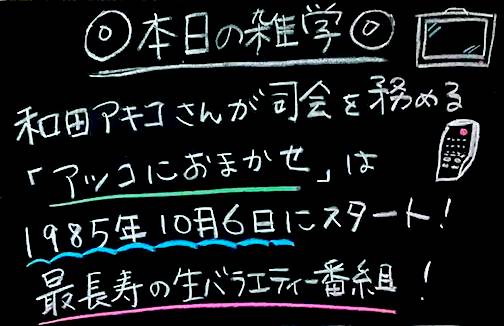 ◎本日の雑学◎
和田アキコさんが司会を務める
「アッコにおまかせ」は
1985年10月6日にスタート!
最長寿の生バラエティー番組!